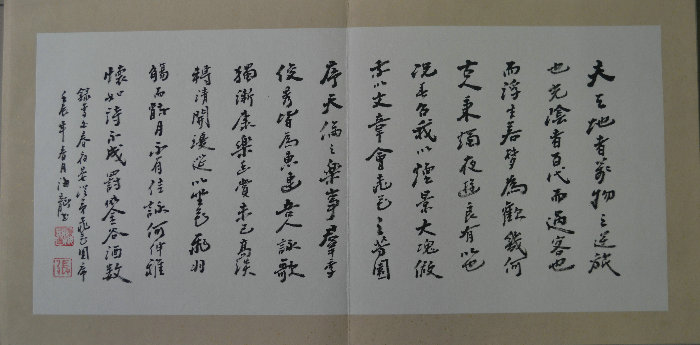 天地者萬物之逆旅
也光陰者百代而過客也
而浮生若夢為歡幾何
古人秉燭夜遊良有以也
況春召我以煙景大塊假
我以文章會桃花之芳園
序天倫之樂事羣季
俊秀皆為惠連吾人詠歌
獨慚康樂幽賞未已高談
轉清開瓊筵以坐花飛羽
觴而醉月不有佳詠何伸雅
懷如詩不成罰以金谷酒數
錄李白春夜宴從弟桃花園序
壬辰年春月海龍
張